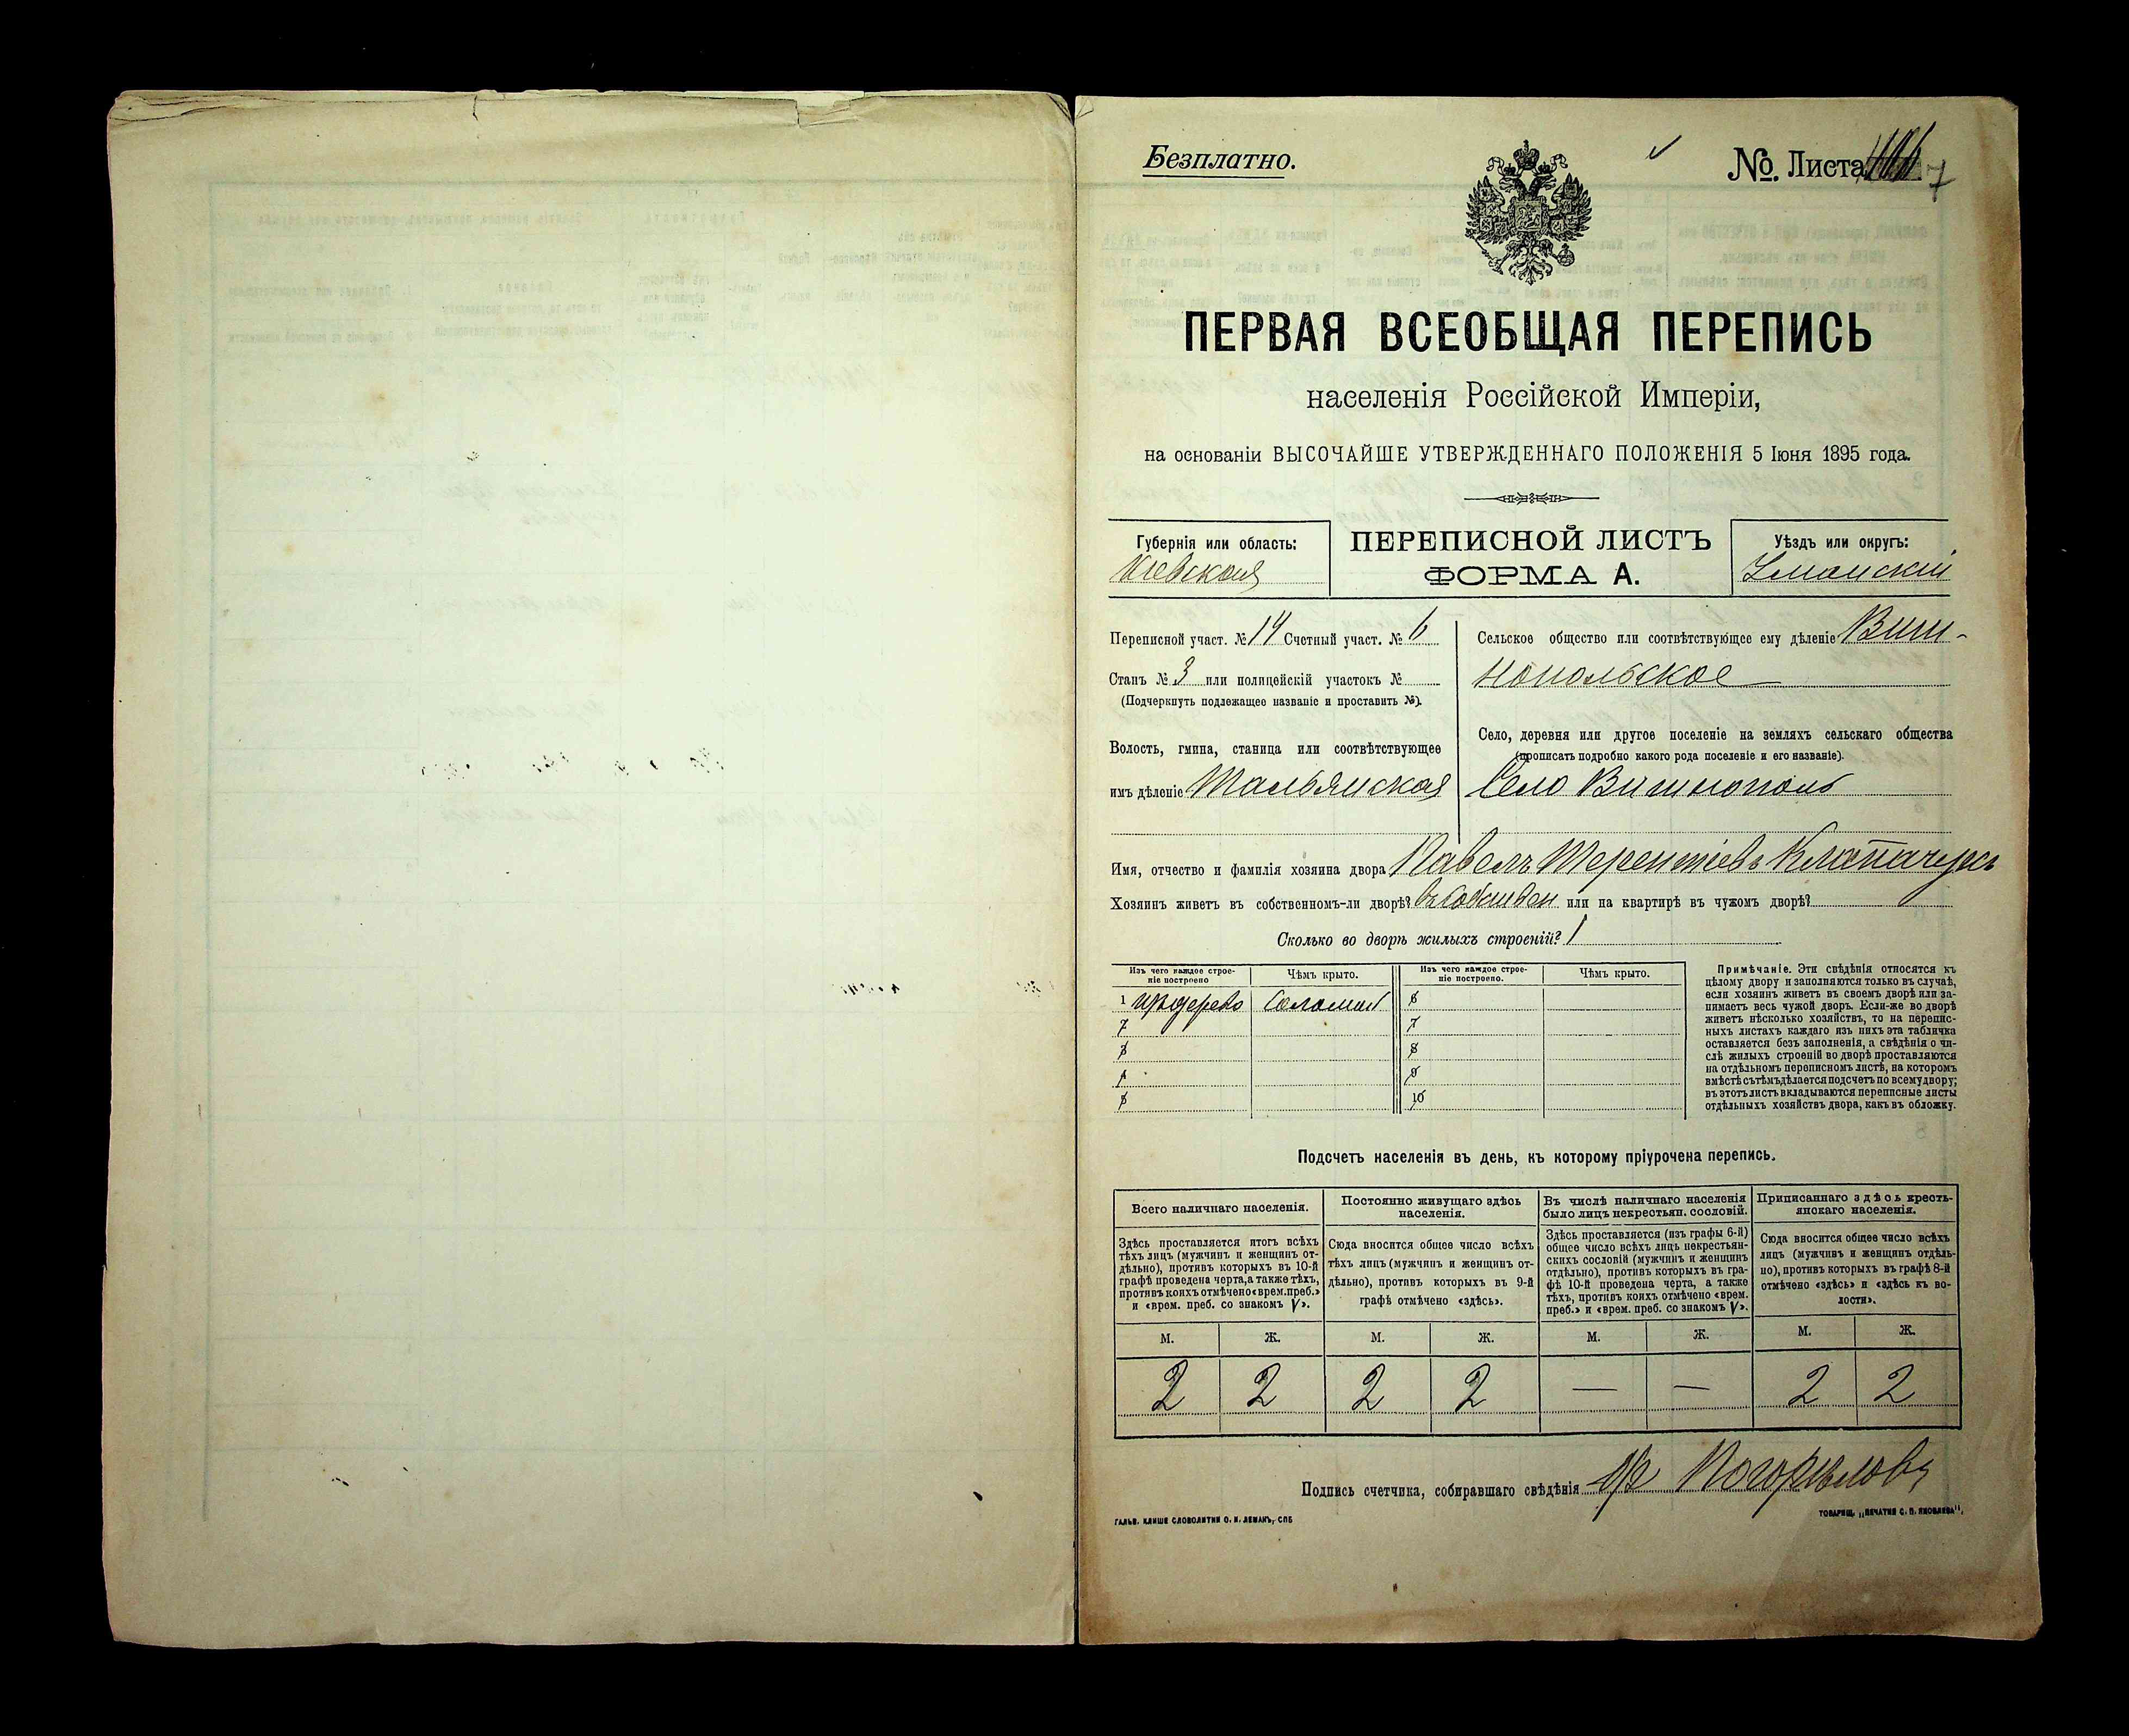 Безплатно.
№. Листа 7
ПЕРВАЯ ВСЕОБЩАЯ ПЕРЕПИСЬ
населенія Россійской Имперіи,
на основаніи ВЫСОЧАЙШЕ УТВЕРЖДЕННАГО ПОЛОЖЕНІЯ 5 Іюня 1895 года.
Губернія или область:
Кіевская
ПЕРЕПИСНОЙ ЛИСТЪ
ФОРМА А.
Уѣздъ или округъ:
Уманскій
Переписной участ. № 14 Счетный участ. № 6
Станъ № 3 или полицейскій участокъ №
(Подчеркнуть подлежащее названіе и проставить №).
Волость, гмина, станица или соотвѣтствующее
имъ дѣленіе Тальянская
Сельское общество или соотвѣтствующее ему дѣленіе Виш-
нопольское
Село, деревня или другое поселеніе на земляхъ сельскаго общества
(прописать подробно какого рода поселеніе и его названіе).
Село Вишнополь
Имя, отчество и фамилія хозяина двора Павелъ Терентіевъ
Хозяинъ живетъ въ собственномъ-ли дворѣ? въ собствен или на квартирѣ въ чужомъ дворѣ?
Сколько во дворѣ жилыхъ строеній? 1
Изъ чего каждое строе-
ніе построено
Чѣмъ крыто.
Изъ чего каждое строе-
ніе построено.
Чѣмъ крыто.
1 Соломой 6
7
3 8
4 9
5 10
Примѣчаніе. Эти свѣдѣнія относятся къ
цѣлому двору и заполняются только въ случаѣ,
если хозяинъ живетъ въ своемъ дворѣ или за-
нимаетъ весь чужой дворъ. Если-же во дворѣ
живетъ нѣсколько хозяйствъ, то на перепис-
ныхъ листахъ каждаго изъ нихъ эта табличка
оставляется безъ заполненія, а свѣдѣнія о чи-
слѣ жилыхъ строеній во дворѣ проставляются
на отдѣльномъ переписномъ листѣ, на которомъ
вмѣстѣ съ тѣмъ дѣлается подсчетъ по всему двору;
въ этотъ листъ вкладываются переписные листы
отдѣльныхъ хозяйствъ двора, какъ въ обложку.
Подсчетъ населенія въ день, къ которому пріурочена перепись.
Всего наличнаго населенія.
Здѣсь проставляется итогъ всѣхъ
тѣхъ лицъ (мужчинъ и женщинъ от-
дѣльно), противъ которыхъ въ 10-й
графѣ проведена черта, а также тѣхъ,
противъ коихъ отмѣчено «врем. преб.»
и «врем. преб. со знакомъ V».
Постоянно живущаго здѣсь
населенія.
Сюда вносится общее число всѣхъ
тѣхъ лицъ (мужчинъ и женщинъ от-
дѣльно), противъ которыхъ въ 9-й
графѣ отмѣчено «здѣсь».
Въ числѣ наличнаго населенія
было лицъ некрестьян. сословій.
Здѣсь проставляется (изъ графы 6-й)
общее число всѣхъ лицъ некрестьян-
скихъ сословій (мужчинъ и женщинъ
отдѣльно), противъ которыхъ въ гра-
фѣ 10-й проведена черта, а также
тѣхъ, противъ коихъ отмѣчено «врем.
преб.» и «врем. преб. со знакомъ V».
Приписаннаго здѣсь кресть-
янскаго населенія.
Сюда вносится общее число всѣхъ
лицъ (мужчинъ и женщинъ отдѣль-
но), противъ которыхъ въ графѣ 8-й
отмѣчено «здѣсь» и «здѣсь къ во-
лости».
М. Ж. М. Ж. М. Ж. М. Ж.
2 2 2 2 — — 2 2
Подпись счетчика, собиравшаго свѣдѣнія Погорѣловъ
ГАЛЬВ. КЛИШЕ СЛОВОЛИТНИ О. И. ЛЕМАНЪ, СПБ
ТОВАРИЩ. „ПЕЧАТНЯ С. П. ЯКОВЛЕВА".